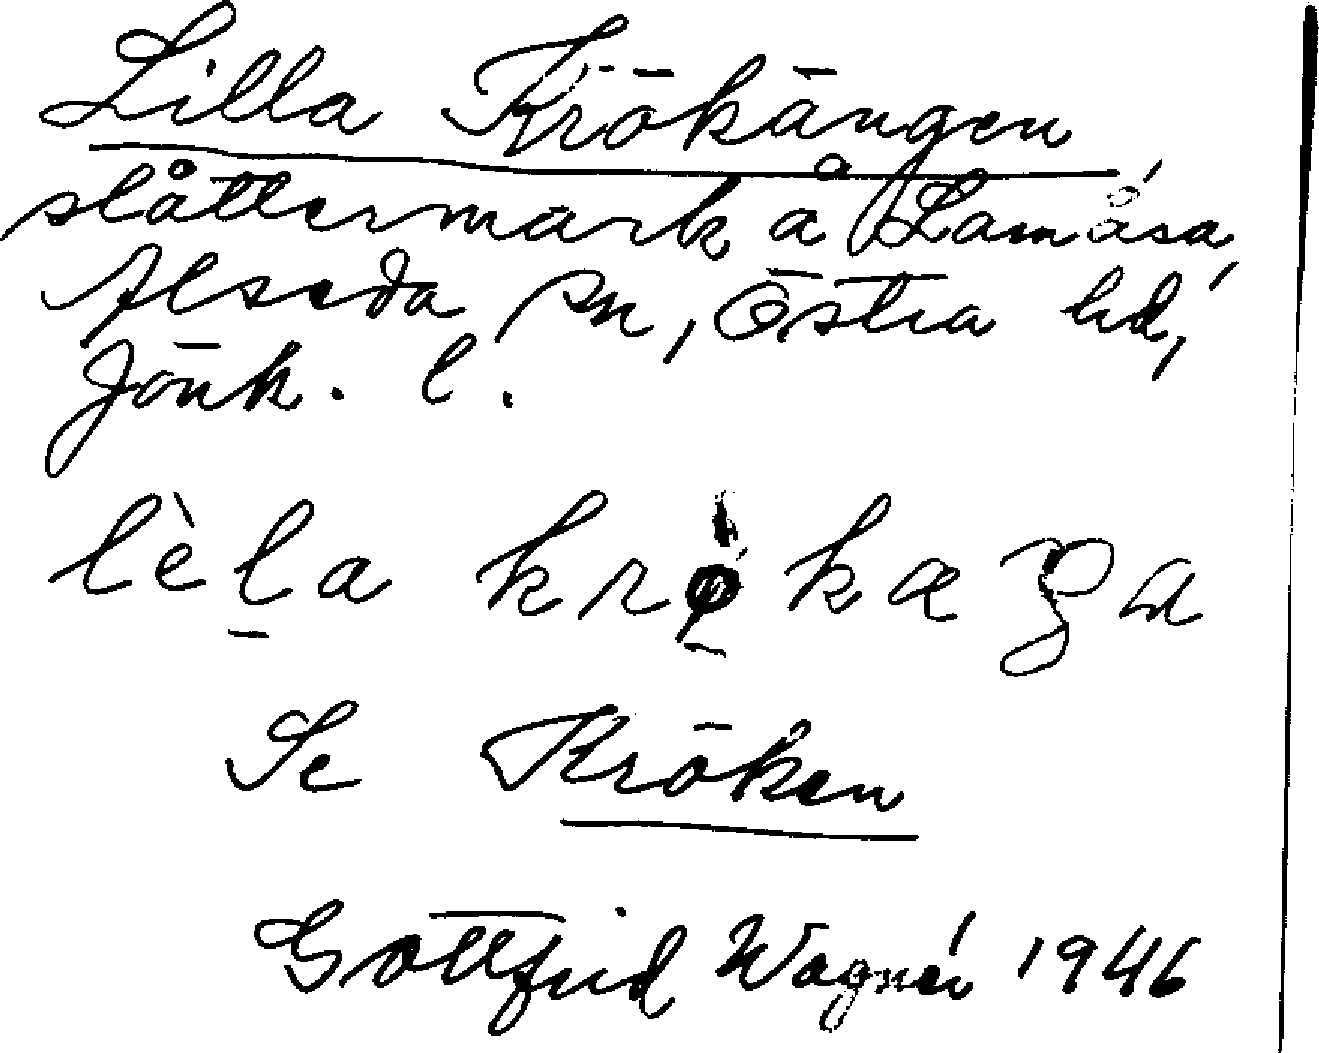 Lilla Krökängen
slåttermark å Lamåsa,
Alseda sn, Östra hd,
Jönk. l.
lèla krø̀kæŋa
Se Kröken
Gottfrid Wagnér 1946